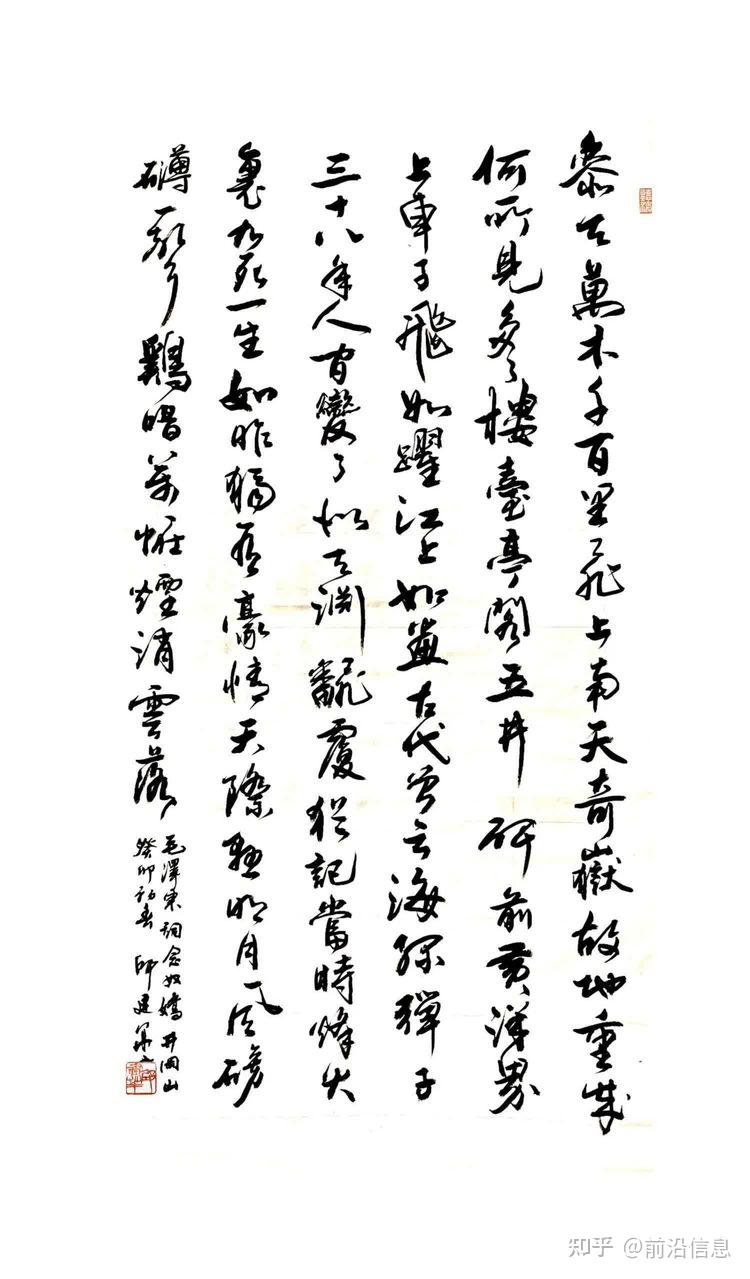 參天萬木千百里飛上南天奇嶽故地重來
何所見多了樓臺亭閣五井碑前黃洋界
上車子飛如躍江山如畫古代曾云海綠彈指
三十八年人間變了似天淵飜覆猶記當時烽火
裏九死一生如昨獨有豪情天際懸明月風雷磅
礴一聲鷄唱萬怪煙消雲落
毛澤東詞念奴嬌井岡山
癸卯初春 師建軍
知乎 @前沿信息